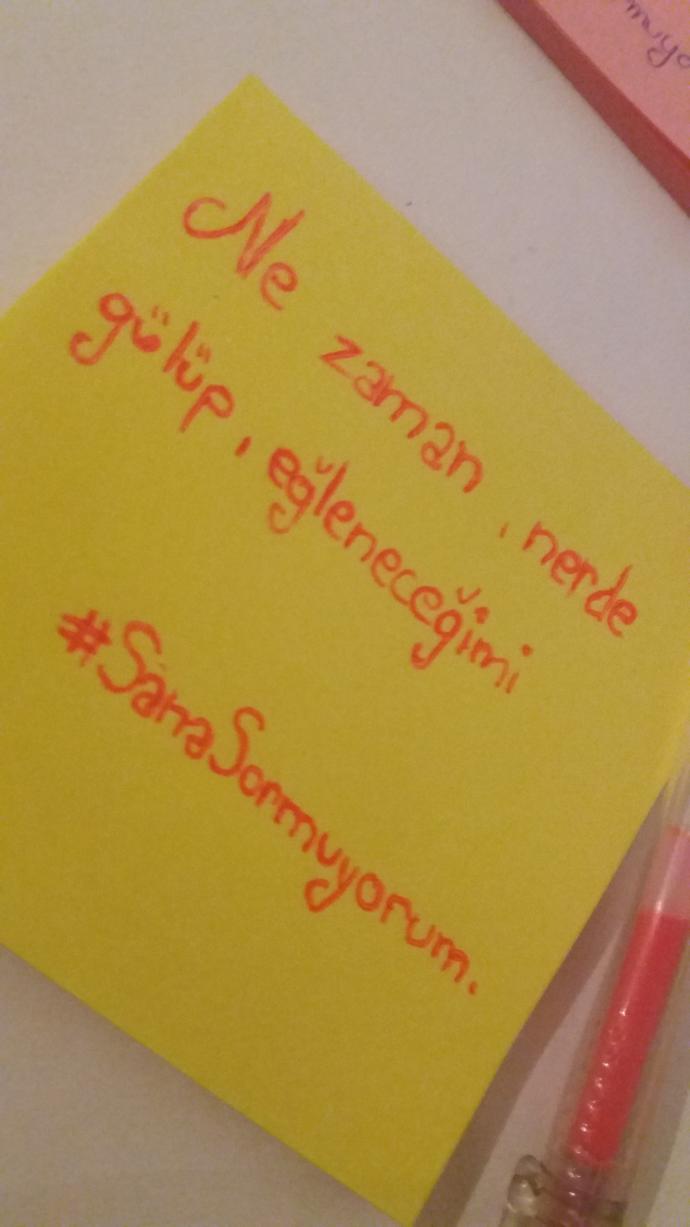 Ne zaman, nerde
gülüp, eğleneceğimi
#SanaSormuyorum.